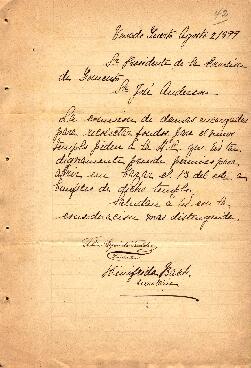 42
Venado Tuerto Agosto 2/899
Sr Presidente de la Comision
de Fomento
Sr José Anderson
La comision de damas encargadas
para recolectar fondos para el nuevo
templo piden a la H. C. que
dignamente preside permiso para
abrir un bazar el 13 del cte a
beneficio de dicho templo.
Saludan a Vd con la
consideracion mas distinguida.
Winifreda Back
Secretaria